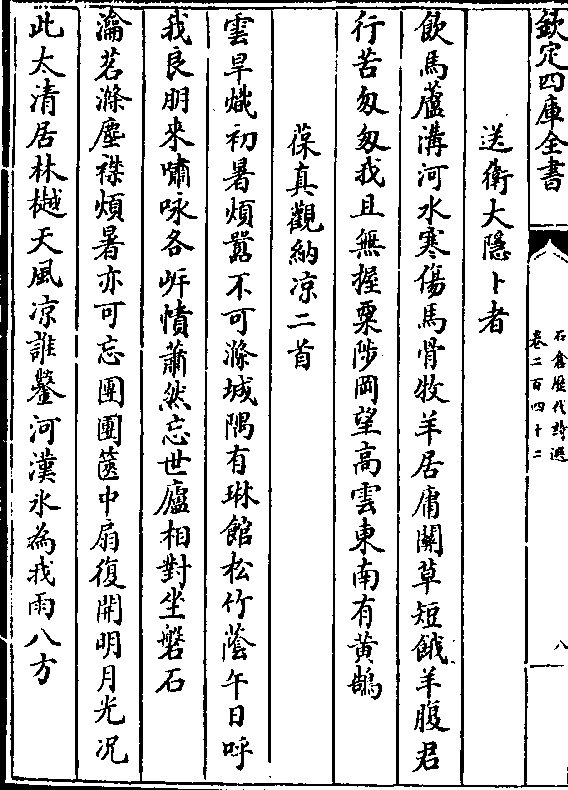 欽定四庫全書
石倉歷代詩選
卷二百四十二
八
送衛大隱卜者
飲馬蘆溝河水寒傷馬骨牧羊居庸關草短餓羊腹君
行苦匆匆我且無握粟陟岡望高雲東南有黄鵠
葆真觀納凉二首
雲旱熾初暑煩嚣不可滌城隅有琳館松竹蔭午日呼
我良朋來嘯咏各岸幘蕭然忘世慮相對坐磐石
瀹茗滌塵襟煩暑亦可忘團團篋中扇復開明月光况
此太清居林樾天風凉誰鑿河漢氷為我雨八方